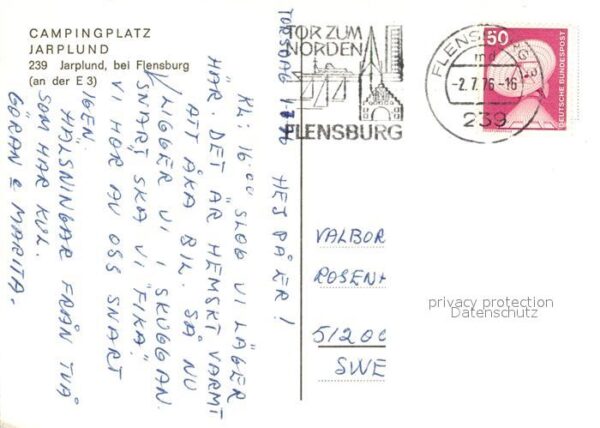 CAMPINGPLATZ
JARPLUND
239 Jarplund, bei Flensburg
(an der E 3)
TORSDAG 1-7-76 HEJ PÅ ER!
KL: 16.00 SLOG VI LÄGER
HÄR. DET ÄR HEMSKT VARMT
ATT ÅKA BIL. SÅ NU
LIGGER VI I SKUGGAN.
SNART SKA VI "FIKA".
VI HÖR AV OSS SNART
IGEN.
HÄLSNINGAR FRÅN TVÅ
SOM HAR KUL.
GÖRAN & MARITA.
TOR ZUM
NORDEN
FLENSBURG
FLENSBURG
md
-2.7.76-16
239
50
DEUTSCHE BUNDESPOST
VALBOR
ROSEN
51200
SWE
privacy protection
Datenschutz